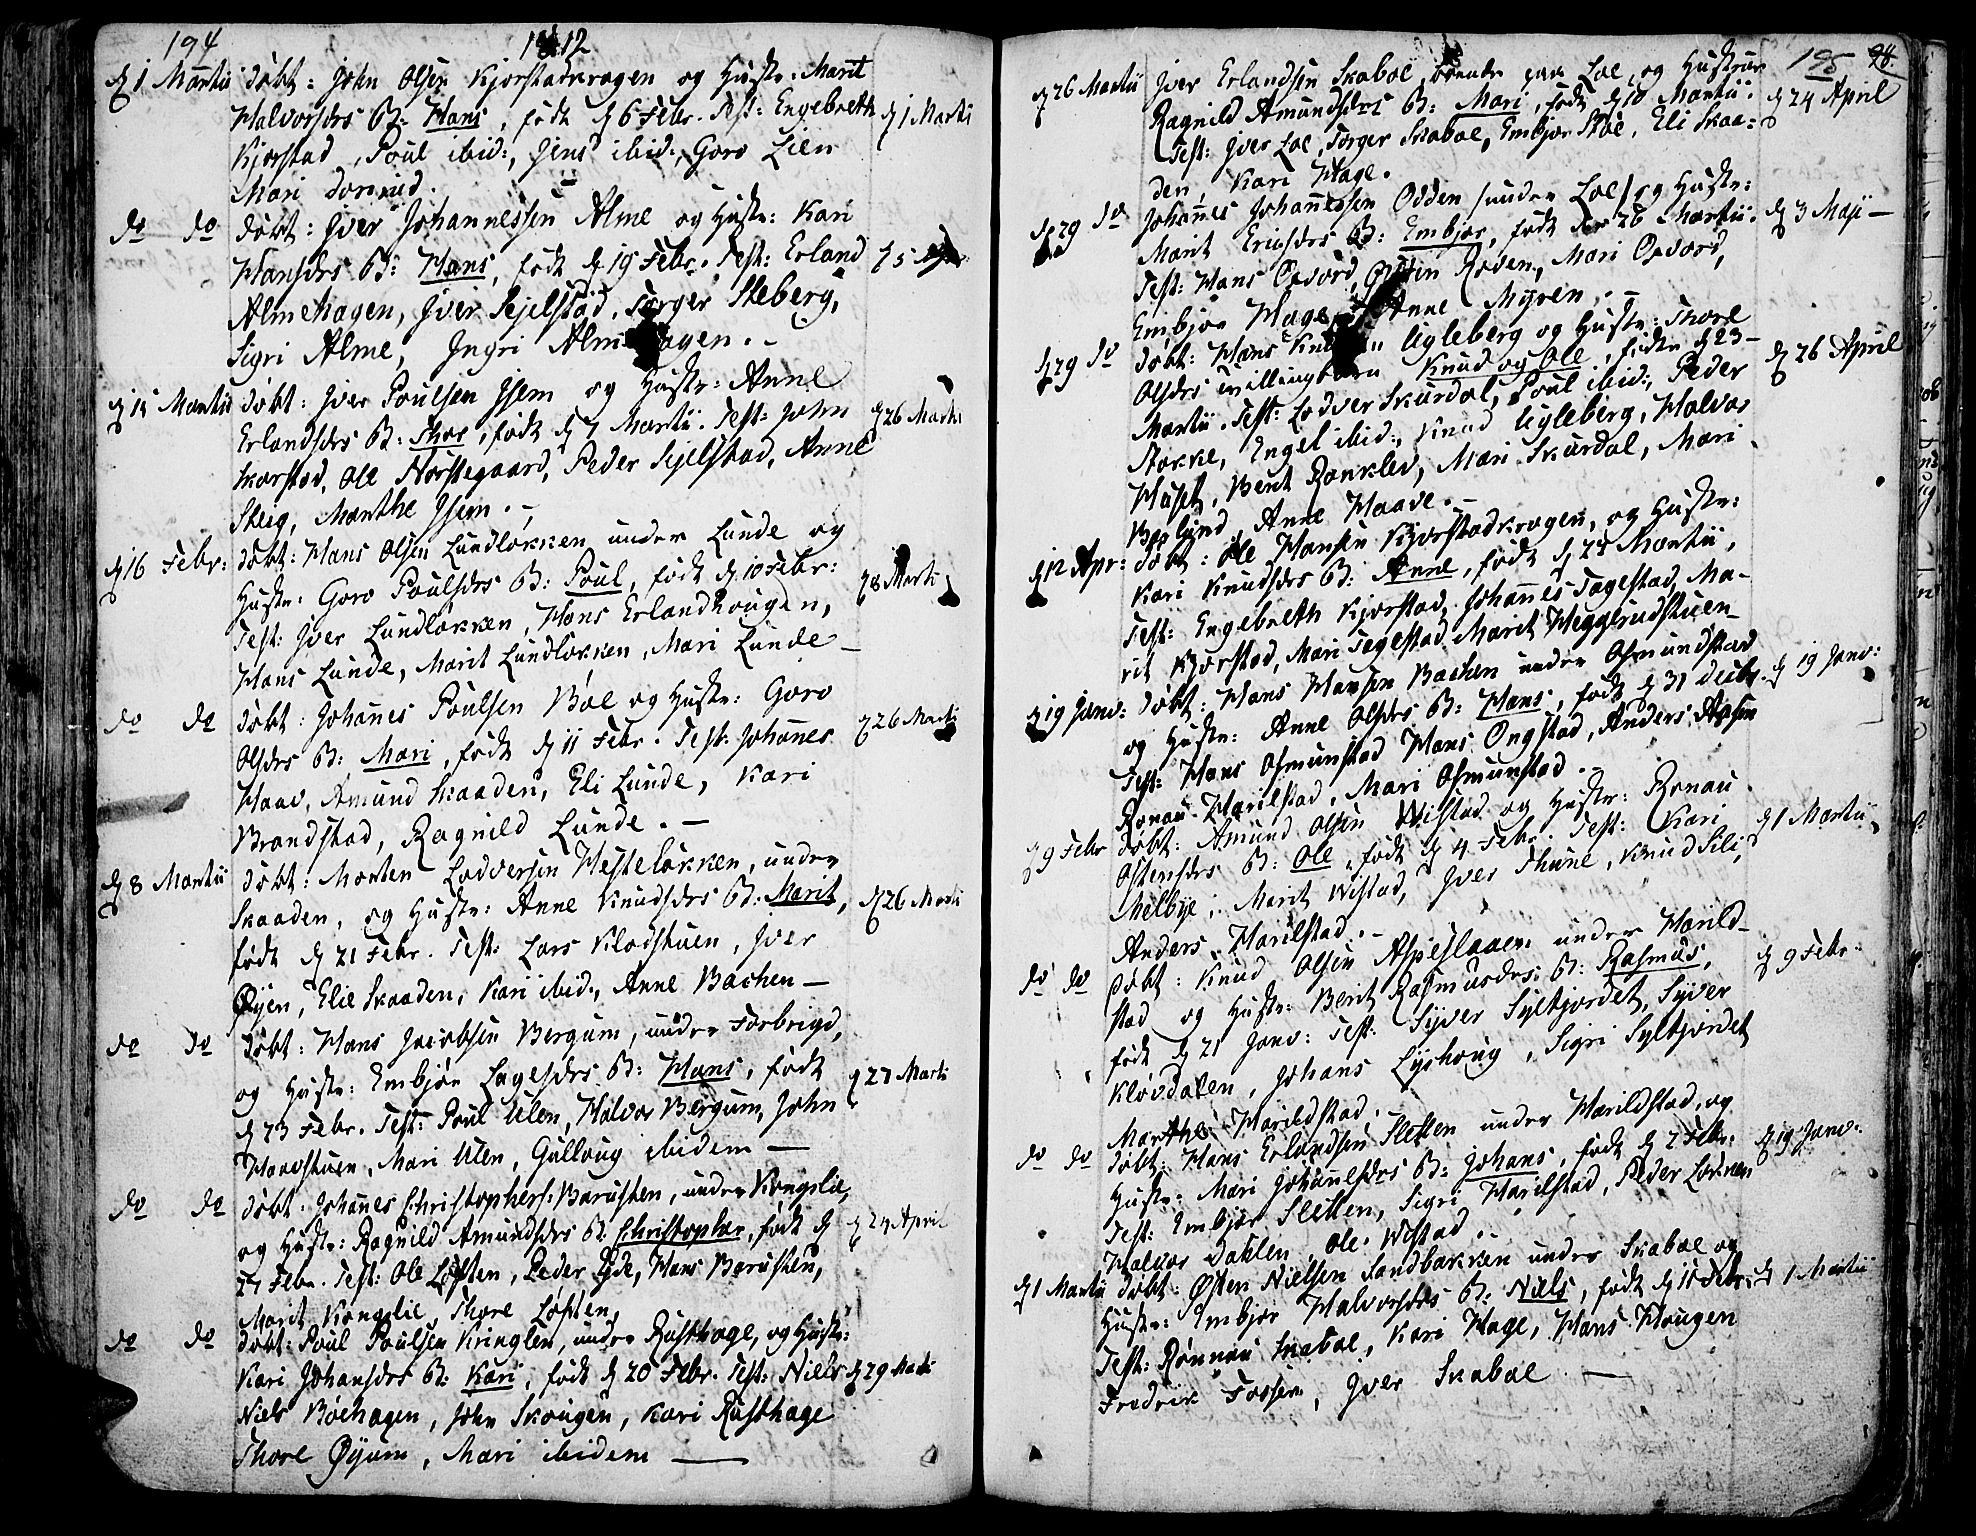 194
1812
d. 1 Martii døbt: John Olsen Kjorstadkragen og Hustr: Marit
Halvorsdrs B: Hans, født d. 6 Febr. Test: Engebreth d. 1 Marti
Kjorstad, Poul ibid:, Jens ibid:, Goro Lien
Mari
do do døbt: Jver Johannessen Alme og Hustr: Kari
Hansdrs B: Hans, født d. 19 Febr. Test: Erland d. 5
Almehagen, Jver Sejelstad, Torger Steberg,
Sigri Alme, Jngri Almehagen. -
d. 15 Martii døbt: Jver Poulsen Jsem og Hustr: Anne
Erlandsdrs B: Thor, født d. 7 Martii. Test: John d. 26 Marti
Korstad, Ole Norstegaard, Peder Sejelstad, Anne
Steig, Marthe Jsem. -
d. 16 Febr: døbt: Hans Olsen Lundløkken under Lunde og
Hustr: Goro Poulsdrs B: Poul, født d. 10 Febr: d. 8 Marti
Test: Jver Lundløkken, Hans Erlandhougen,
Hans Lunde, Marit Lundløkken, Mari Lunde -
do do døbt: Johanes Poulsen Bøe og Hustr: Goro
Olsdrs B: Mari, født d. 11 Febr. Test: Johanes d. 26 Marti
Haav, Amund Skaaden, Eli Lunde, Kari
Brandstad, Ragnild Lunde. -
d. 8 Martii døbt: Morten Lodversen Hesteløkken, under
Skaaden, og Hustr: Anne Knudsdrs B: Marit, d. 26 Marti
født d. 21 Febr. Test: Lars Klodstuen, Jver
Øyen, Elie Skaaden, Kari ibid:, Anne Bachen -
do do døbt: Hans Jacobsen Bergum, under Forbrigd,
og Hustr: Embjør Lagesdrs B: Hans, født d. 27 Marti
d. 23 Febr. Test: Poul Ulen, Halvor Bergum, John
Haavstuen, Mari Ulen, Gulloug ibidem -
do do døbt: Johanes Christophers: Barusten, under Kongslie,
og Hustr: Ragnild Amundsdrs B: Christopher, født d. d. 24 April
27 Febr. Test: Ole Løften, Peder Lyde, Hans Barusten,
Marit Kongslie, Thore Løften,
do do døbt: Poul Poulsen Kringlen, under Rusthage, og Hustr:
Kari Johansdrs B: Kari, født d. 20 Febr. Test: Niels d. 29 Marti
Niels Bøehagen, John Skougen, Kari Rusthage
Thore Øyum, Mari ibidem -
195 98.
d. 26 Martii Jver Erlandsen Skaboe, boende paa Loe, og Hustrue
Ragnild Amundsdrs B: Mari, født d. 10 Martii. d. 24 April
Test: Jver Loe, Torger Skaboe, Embjør Stoe, Eli Skaa=
den, Kari Hage.
d. 29 do Johanes Johanessen Odden /under Loe/ og Hustr:
Marit Erichsdrs B: Embjør, født den 26 Martii. d. 3 Maji -
Test: Hans Opvord, Østen Roden, Mari Opvord,
Embjør Hage, Anne Myren. -
d. 29 do døbt: Hans Knudsen Ugleberg og Hustr: Thore
Olsdrs tvillingbørn Knud og Ole, fødte d. 23 - d. 26 April
Martii. Test: Lodver Skurdal, Poul ibid:, Peder
Stokke, Engel ibid:, Knud Ugleberg, Halvor
Huset, Berit Ronklev, Mari Skurdal, Mari
Børlund, Anne Haave. -
d. 12 Apr: døbt: Ole Hansen Kjorstadkragen, og Hustr:
Kari Knudsdrs B: Anne, født d. 27 Martii,
Test: Engebreth Kjorstad, Johanes Tagestad, Ma-
rit Kjorstad, Mari Tagestad, Marit Hegglundstuen -
d. 19 Janv: døbt: Hans Hansen Bachen under Osmundstad d. 19 Janv:
og Hustr: Anne Olsdrs B: Hans, født d. 31 Decbr.
Test: Hans Osmunstad, Hans Ongstad, Anders
Ronau Harilstad, Mari Osmunstad. -
d. 9 Febr døbt: Amund Olsen Wistad og Hustr: Ronau
Ostensdrs B: Ole, født d. 4 Febr. Test: Kari d. 1 Martii
Melbye, Marit Wistad, Jver Thune, Knud Lili,
Anders Harilstad. -
do do døbt: Knud Olsen Aspeslaaen under Harild-
stad og Hustr: Berit Rasmusdrs: B: Rasmus, d. 9 Febr.
født d. 21 Janv: Test: Syver Syltjordet, Syver
Kløvdalen, Johans Lyshoug, Sigri Syltjordet
Marthe Harildstad.
do do døbt: Hans Erlandsen Sletten under Harildstad, og
Hustr: Mari Johanesdrs B: Johans, født d. 2 Febr. d. 19 Janv:
Test: Embjør Sletten, Sigri Harilstad, Peder Løkken
Halvor Dahlen, Ole Wistad.
d. 1 Martii døbt: Østen Nielsen Sandbakken under Skaboe og
Hustr: Embjør Halvorsdrs B: Niels, født d. 15 Febr: d. 1 Martii
Test: Rønnau Skaboe, Kari Hage, Hans Hougen
Fredrik Fossen, Jver Skaboe -